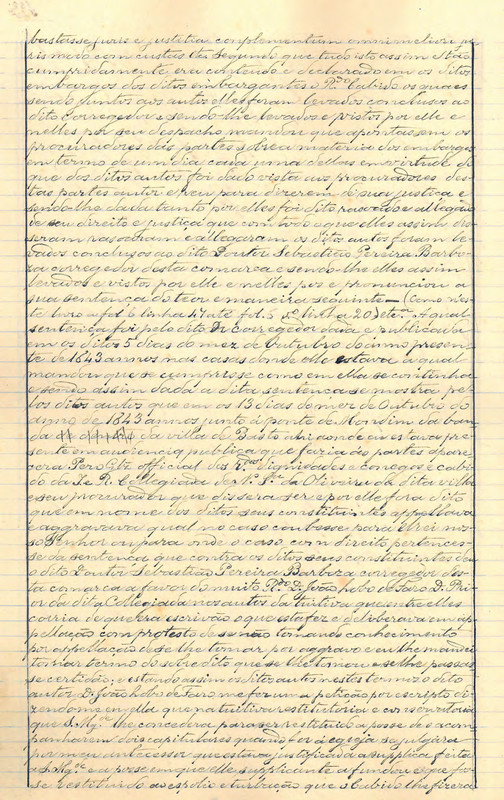 bastasse juris e justitia complementum omni meliori ju
ris modo com custas etc. Segundo que tudo isto assim e tão
cumpridamente era conteudo e declarado em os ditos
embargos dos ditos embargantes o R.do Cabido os quaes
sendo juntos aos autos elles foram levados conclusos ao
dito corregedor e sendo-lhe levados e vistos por elle e
nelles por seu despacho mandou que apontassem os
procuradores das partes sobre a materia dos embargos
em termo de um dia cada uma dellas em virtude do
que dos ditos autos foi dado vista aos procuradores des
tas partes autor e reu para dizerem de sua justiça e
sendo-lhe dada tanto por elles foi dito razoado e allegado
de seu direito e justiça que com todo o que elles assim dis
seram rasoaram e allegaram os ditos autos foram le
vados conclusos ao dito Doutor Sebastião Pereira Barbo
za corregedor desta comarca e sendo-lhe elles assim
levados e vistos por elle e nelles poz e pronunciou a
sua sentença do teor e maneira seguinte — (Como nes
te livro a fol. linha 47 até fol. linha 20) etc. A qual
sentença foi pelo dito Dr. Corregedor dada e publicada
em os ditos 5 dias do mez de Outubro do anno presen
te de 1643 annos nas casas donde elle estava a qual
mandou que se cumprisse como em ella se continha
e sendo assim dada a dita sentença se mostra pe
los ditos autos que em os 13 dias do mez de Outubro do
anno de 1643 annos junto á ponte de Mondim da ban
da da villa de Basto ahi aonde eu estava pre
sente em audiencia publica que fazia ás partes apare
cera Pero Glz official das dignidades e conegos e cabi
do da Collegiada de N. Sr.a da Oliveira da dita villa
e seu procurador que dissera ser e por elle fora dito
que em nome dos ditos seus constituintes appellava
e aggravava qual no caso coubesse para elrei nos
so Senhor ou para onde o caso com direito pertences
se da sentença que contra os ditos seus constituintes deu
o dito Doutor Sebastião Pereira Barboza corregedor des
ta comarca a favor do muito R.do D. João Lobo de Faro D. Pri
or da dita Collegiada nos autos da tuitiva que entre elles
corria de que era escrivão o que esta fez e deliberava em ap
pellação com protesto de se não tomando conhecimento
por appellação de se lhe tomar por aggravo e eu lhe mandei
tomar termo do sobredito que se lhe tomou e se lhe passas
se certidão, e estando assim os ditos autos nestes termos o dito
autor D. João Lobo de Faro me fez uma petição por escripto di
zendo-me em ella que na tuitiva restitutoria e conservatoria
que S. Mg.de lhe concedera para ser restituido á posse de o acom
panharem dois capitulares quando for á egreja se julgára
por meu antecessor que estava justificada a supplica feita
a S. Mg.de e a posse em que elle supplicante a fundou e que fos
se restituido ao espolio e turbação que o Cabido lhe fizera